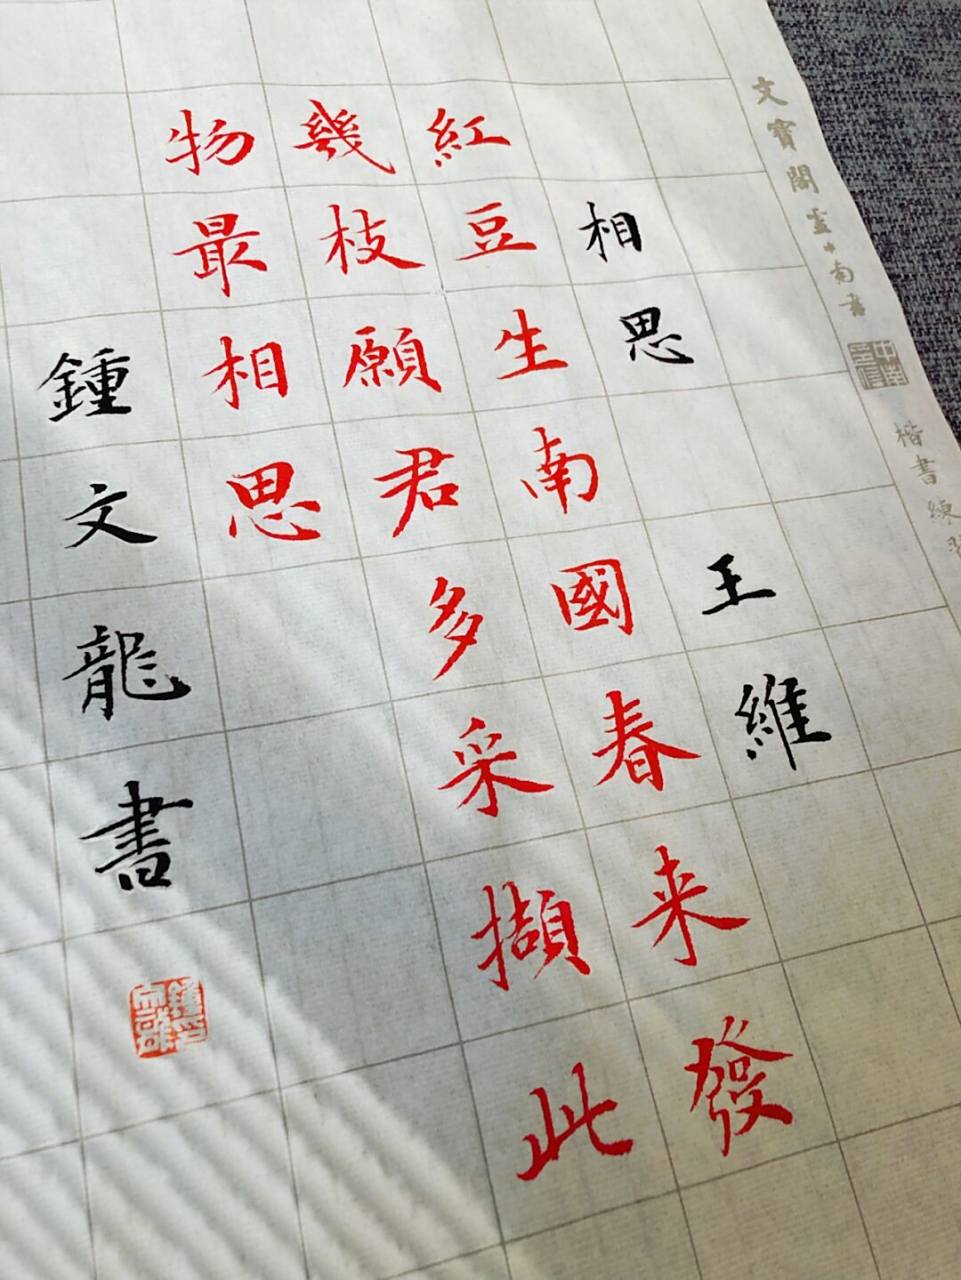 文寶閣盧中南書
中南
楷書練習
相思 王維
紅豆生南國春来發
幾枝願君多采擷此
物最相思
鍾文龍書